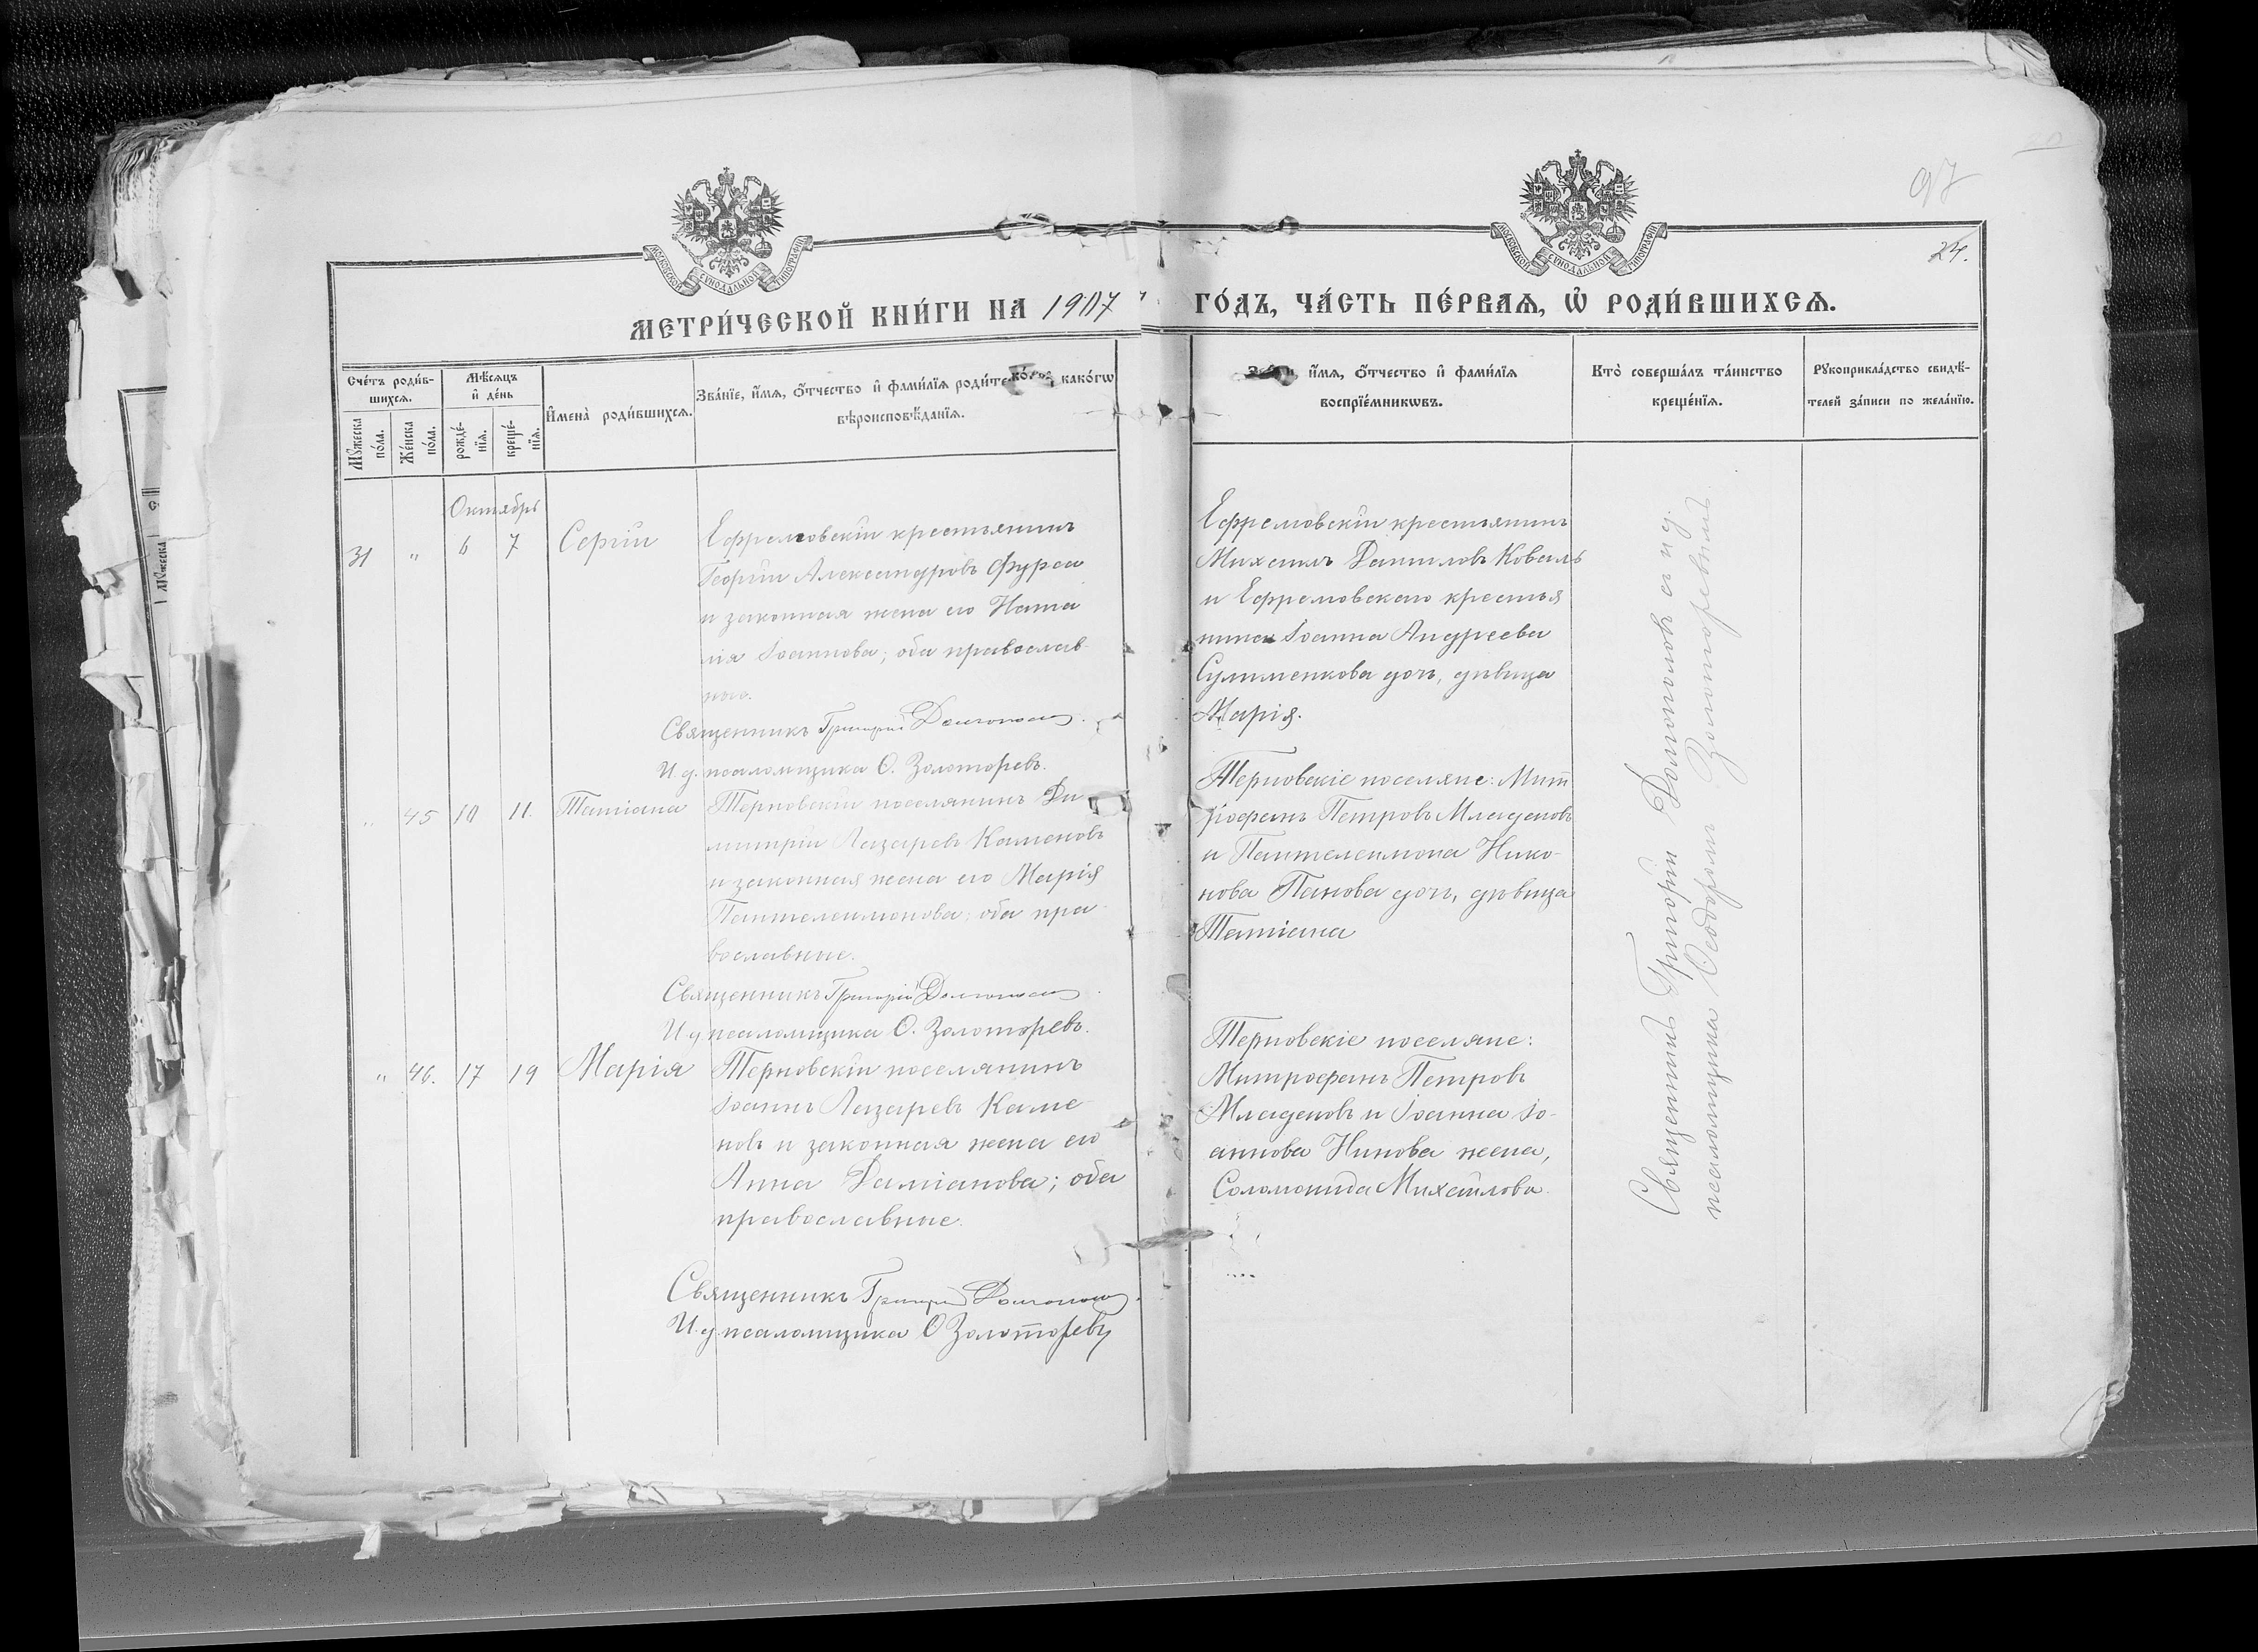 97
24.
МОСКОВСКОЙ СѴНОДАЛЬНОЙ ТИПОГРАФІИ
МОСКОВСКОЙ СѴНОДАЛЬНОЙ ТИПОГРАФІИ
МЕТРИ́ЧЕСКОЙ КНИ́ГИ НА 1907 ГО́ДЪ, ЧА́СТЬ ПЕ́РВАѦ, Ѡ҆ РОДИ́ВШИХСѦ.
Сче́тъ роди́в-
шихсѧ.
Мꙋжеска
по́ла.
Же́нска
по́ла.
Мѣ́сѧцъ
и҆ де́нь
рожде́-
нїѧ.
креще́-
нїѧ.
И҆мена̀ роди́вшихсѧ.
Зва́нїе, и҆́мѧ, ѻ҆́тчество и҆ фами́лїѧ роди́те како́гѡ
вѣроисповѣ́данїѧ.
и҆́мѧ, ѻ҆́тчество и҆ фами́лїѧ
воспрїе́мникѡвъ.
Кто̀ соверша́лъ та́инство
креще́нїѧ.
Рꙋкоприкла́дство свидѣ́-
телей за́писи по жела́нїю.
Октябрь
31 " 6 7 Сергій
Ефремовскій крестьянинъ
Георгій Александровъ Фурса
и законная жена его Ната
лія Іоаннова; оба православ-
ные.
Священникъ Григорій Долгополовъ.
И. д. псаломщика Ѳ. Золоторевъ.
Ефремовскій крестьянинъ
Михаилъ Даниловъ Коваль
и Ефремовскаго крестья
нина Іоанна Андреева
Сулименкова дочь, дѣвица
Марія.
" 45 10 11. Татіана
Терновскій поселянинъ Ди
митрій Лазаревъ Каменовъ
и законная жена его Марія
Пантелеимонова; оба пра-
вославные.
Священникъ Григорій Долгополовъ.
И д псаломщика Ѳ. Золоторевъ.
Терновскіе поселяне: Мит
рофанъ Петровъ Младеновъ
и Пантелеимона Нико-
нова Панова дочь, дѣвица
Татіана
" 46. 17 19 Марія
Терновскій поселянинъ
Іоаннъ Лазаревъ Каме-
новъ и законная жена его
Анна Даміанова; оба
православные.
Священникъ Григорій Долгополовъ.
И д псаломщика Ѳ Золоторевъ
Терновскіе поселяне:
Митрофанъ Петровъ
Младеновъ и Іоанна Іо-
аннова Нинова жена,
Соломонида Михайлова.
Священникъ Григорій Долгополовъ съ и. д.
псаломщика Ѳеодоромъ Золоторевымъ.